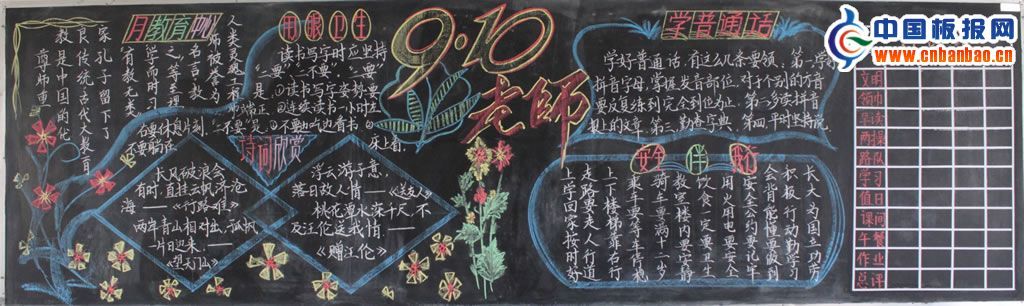 中国板报网
www.cnbanbao.cn
月教育
尊师重
教是中国的优
良传统古代大教育
家孔子留下了
有教无类
学而时习
之等至理
名言教
师被誉为
人类灵魂
用眼卫生
读书写字时应坚持
"二要""二不要"
二要是
①读书写字姿势
要端正
②连续读书一小时左
右要休息片刻
二不要是
①不要吃边看书
②不要躺在床上看
诗词欣赏
长风破浪会
有时直挂云帆济沧
海——《行路难》
两岸青山相对出,孤帆
一片日边来.——
《望天门山》
浮云游子意,
落日故人情——《送友人》
桃花潭水深千尺,不
及汪伦送我情——
《赠汪伦》
9·10
老师
学普通话
学好普通话,有这么几条要领,第一,学
拼音字母,掌握发音部位,对于个别的方音
要反复练到完全到位为止.第二,多读拼音
报上的文章.第三,勤查字典,第四,平时坚持说.
安全伴我行
上学回家按时好
走路要走人行道
上下楼梯靠右行
乘车要等车停稳
骑车要高十二岁
教室楼内要安静
饮食一定要卫生
用火用电要安全
安全公约要记牢
会背能懂要做到
积极行动勤学习
长大为国立功劳
文明
领巾
早读
两操
路队
学习
值日
课间
午餐
作业
点评